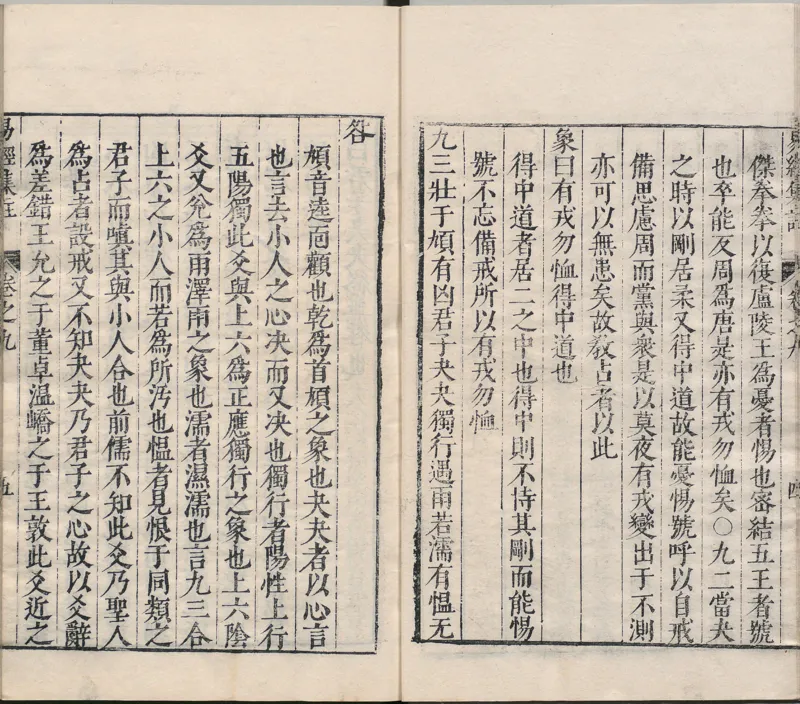 易經集註 卷之九 四
傑拳拳以復廬陵王爲憂者惕也密結五王者號
也卒能反周爲唐是亦有戎勿恤矣〇九二當夬
之時以剛居柔又得中道故能憂惕號呼以自戒
備思慮周而黨與衆是以莫夜有戎變出于不測
亦可以無患矣故教占者以此
象曰有戎勿恤得中道也
得中道者居二之中也得中則不恃其剛而能惕
號不忘備戒所以有戎勿恤
九三壯于頄有凶君子夬夬獨行遇雨若濡有慍无
咎
頄音逵面顴也乾爲首頄之象也夬夬者以心言
也言去小人之心决而又决也獨行者陽性上行
五陽獨此爻與上六爲正應獨行之象也上六陰
爻又兌爲雨澤雨之象也濡者濕濡也言九三合
上六之小人而若爲所汚也慍者見恨于同類之
君子而嗔其與小人合也前儒不知此爻乃聖人
爲占者設戒又不知夬夬乃君子之心故以爻辭
爲差錯王允之于董卓溫嶠之于王敦此爻近之
易經集註 卷之九 五